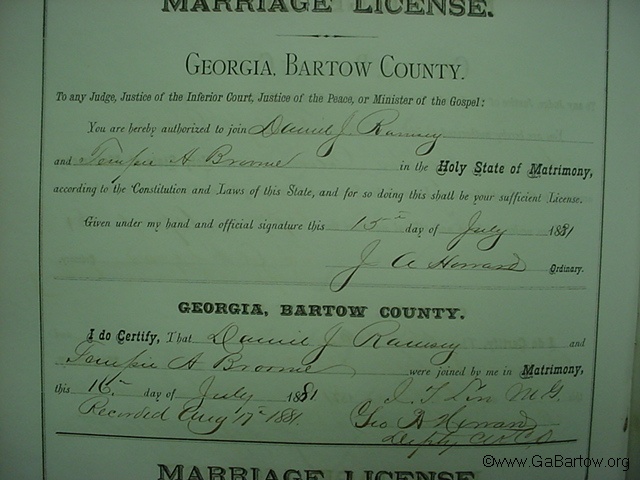 MARRIAGE LICENSE.
GEORGIA, BARTOW COUNTY.
To any Judge, Justice of the Inferior Court, Justice of the Peace, or Minister of the Gospel:
You are hereby authorized to join Daniel J Ramsey
and Tempie A Broome in the Holy State of Matrimony,
according to the Constitution and Laws of this State, and for so doing this shall be your sufficient License.
Given under my hand and official signature this 15th day of July 1881
J A Howard Ordinary.
GEORGIA, BARTOW COUNTY.
I do Certify, That Daniel J Ramsey and
Tempie A Broome were joined by me in Matrimony,
this 16th day of July 1881 M.G.
Recorded Aug 17th 1881. Geo A Howard
MARRIAGE LICENSE.
©www.GaBartow.org